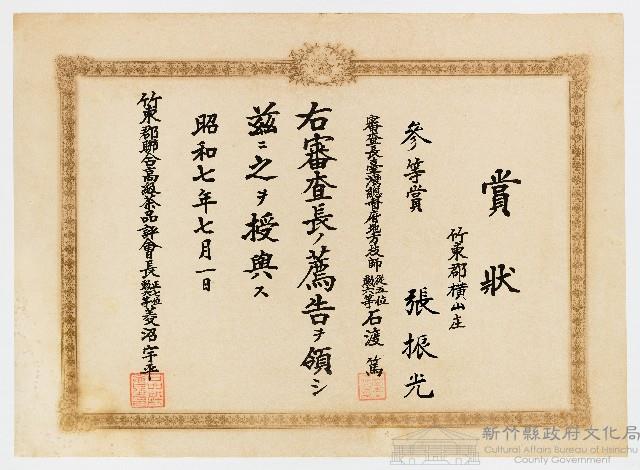 賞狀
竹東郡橫山庄
參等賞 張振光
審查長臺灣總督府地方技師 從五位勲六等 石渡篤
右審查長ノ薦告ヲ領シ
茲ニ之ヲ授與ス
昭和七年七月一日
竹東郡聯合高級茶品評會長 正七位勲六等 菱沼宇平
新竹縣政府文化局
Cultural Affairs Bureau of Hsinchu
County Government